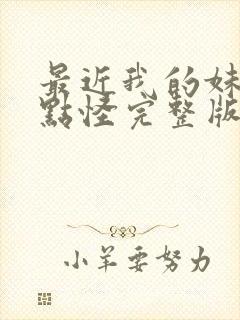 最近我的妹
點怪完整版
小羊要努力